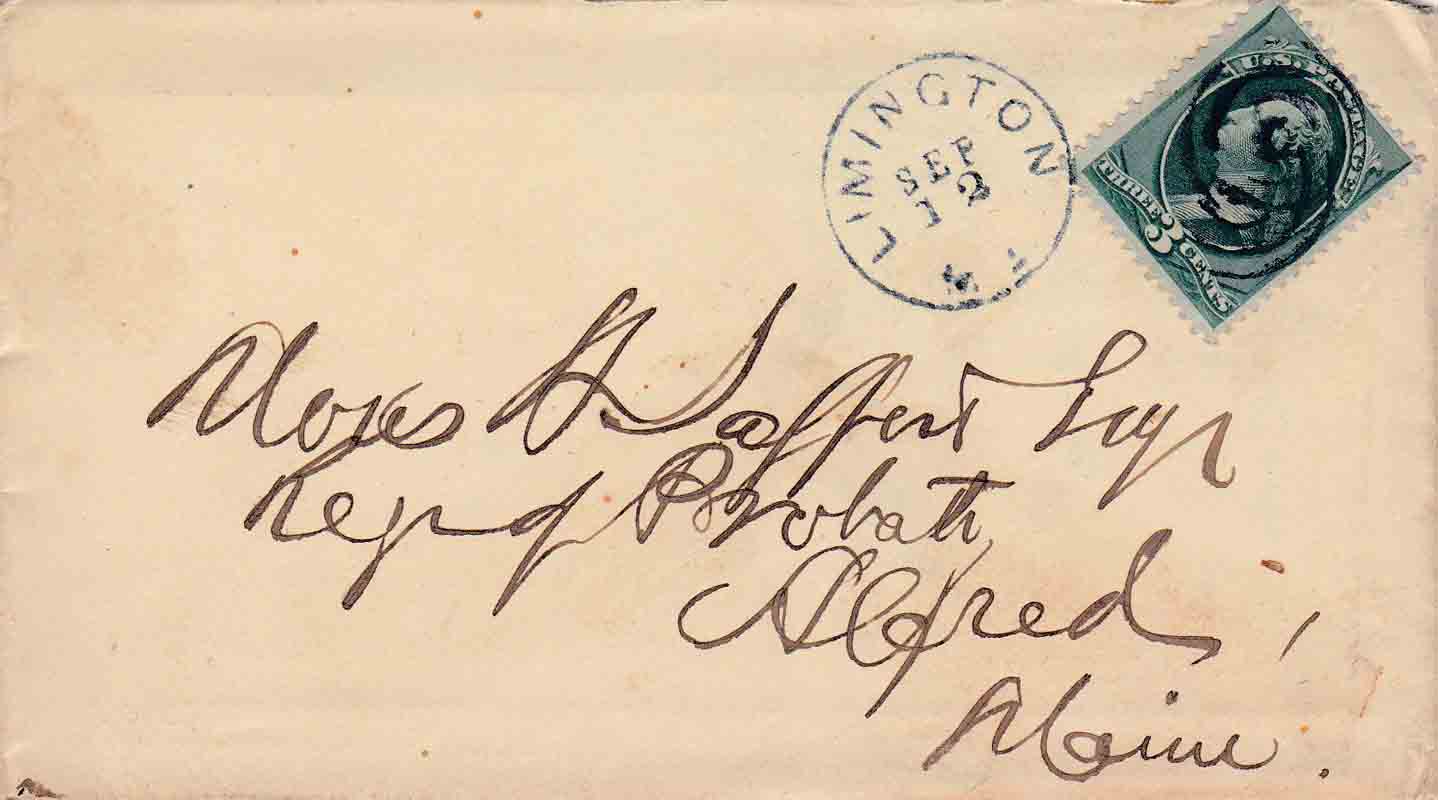 LIMINGTON
SEP
12
ME
U.S. POSTAGE
THREE 3 CENTS
Moses H Safford Esqr
Regr of Probate
Alfred,
Maine.